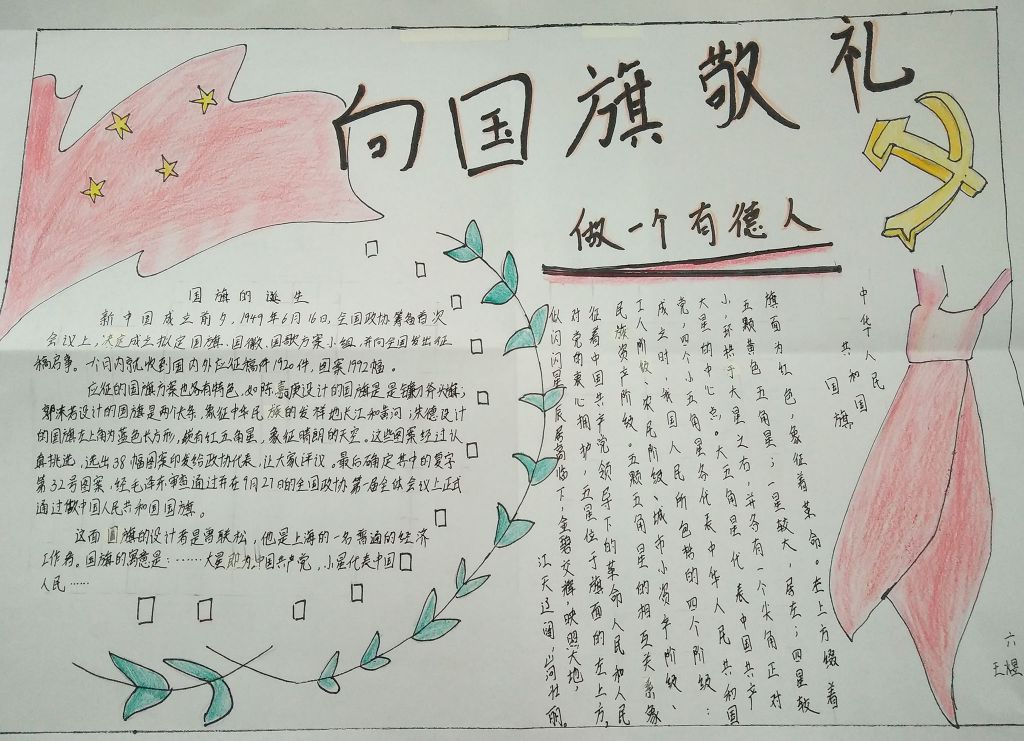 向国旗敬礼
做一个有德人
国旗的诞生
新中国成立前夕,1949年6月16日,全国政协筹备首次
会议上,决定成立拟定国旗、国徽、国歌方案小组,并向全国发出征
稿启事。一个月内就收到国内外应征稿件1920件,图案1992幅。
应征的国旗方案也各有特色,如陈嘉庚设计的国旗是是镰刀斧头旗;
郭沫若设计的国旗是两代车,象征中华民族的发祥地长江和黄河;朱德设计
的国旗左上角为蓝色长方形,嵌有红五角星,象征晴朗的天空。这些图案经过认
真挑选,选出38幅图案印发给政协代表,让大家评议。最后确定其中的复字
第32号图案,经毛泽东审查通过并在9月27日的全国政协第一届全体会议上正式
通过做中国人民共和国国旗。
这面国旗的设计者是曾联松,他是上海的一名普通的经济
工作者。国旗的寓意是:……大星即为中国共产党,小星代表中国
人民……
中华人民
共和国
国旗
旗面为红色,象征着革命。左上方缀着
五颗黄色五角星;一星较大,居左;四星较
小,环拱于大星之右,并各有一个尖角正对
大星的中心点。大五角星代表中国共产
党,四个小五角星各代表中华人民共和国
成立之时,我国人民所包括的四个阶级:
工人阶级、农民阶级、城市小资产阶级、
民族资产阶级。五颗五角星的相互关系象
征着中国共产党领导下的革命人民和人民
对党的衷心拥护,五星位于旗面的左上方,
似闪闪星辰居高临下,金碧交辉,映照大地,
江天辽阔,山河壮丽。
六
王煜